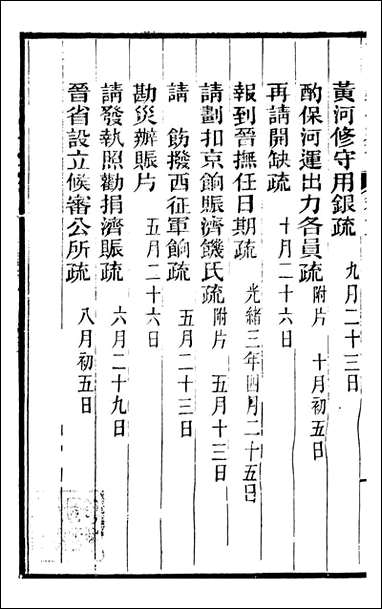 黃河修守用銀疏 九月二十三日
酌保河運出力各員疏 附片 十月初五日
再請開缺疏 十月二十六日
報到晉撫任日期疏 光緒三年四月二十五日
請劃扣京餉賑濟饑民疏 附片 五月十三日
請 飭撥西征軍餉疏 五月二十三日
勘災辦賑片 五月二十六日
請發執照勸捐濟賑疏 六月二十九日
晉省設立候審公所疏 八月初五日